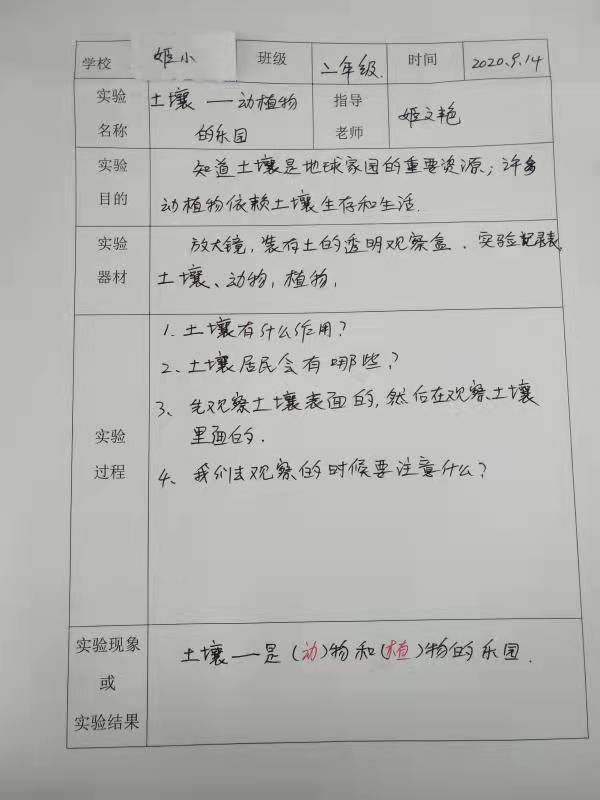 学校 姬小 班级 二年级. 时间 2020.9.14
实验 土壤——动植物 指导 姬文艳
名称 的乐园 老师
实验 知道土壤是地球家园的重要资源；许多
目的 动植物依赖土壤生存和生活.
实验 放大镜，装有土的透明观察盒．实验记录表，
器材 土壤、动物，植物，
1. 土壤有什么作用？
2、土壤居民会有哪些？
3、先观察土壤表面的，然后在观察土壤
里面的.
实验
过程
4、我们去观察的时候要注意什么？
实验现象 土壤——是（动）物和（植）物的乐园.
或
实验结果